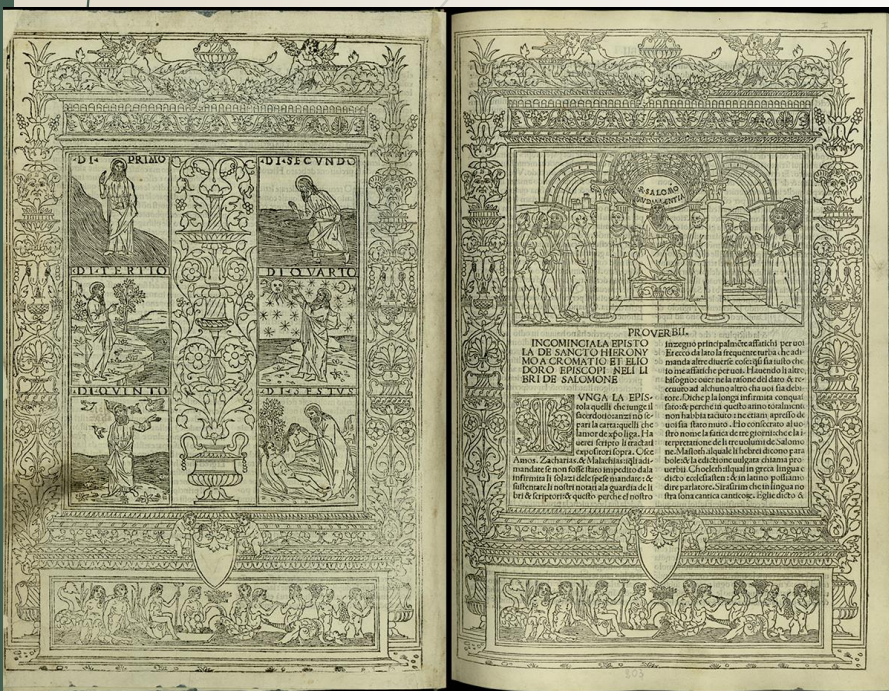 DI PRIMO
DI SECVNDO
DI TERTIO
DI QVARTO
DI QVINTO
DI SESTVS
SALOMO
PROVERBII.
INCOMINCIA LA EPISTO
LA DE SANCTO HIERONY
MO A CROMATIO ET ELIO
DORO EPISCOPI NELI LI
BRI DE SALOMONE
IVNGA LA EPIS-
tola quelli che iunge il
sacerdotio: anzi no se-
pari la carta: quelli che
lamor de xpo liga. Ha
uerei scripto li tractati
expositori sopra. Osee
Amos. Zacharias. & Malachias: adi-
mandate se non fosse stato impedito da la
infirmita li solazi dele spese mandate: &
sustentare li nostri notari a la guardia de li
bri & scriptori: & questo perche el nostro
inzegno principalmēte affatichi per uoi
Et ecco da lato la frequente turba che adi-
manda altre diuerse cose: q̄si sia iusto che
io me affatiche per uoi. Hauendo li altri
bisogno: ouer ne la rasone del dato & re-
ceuuto ad alchuno altro cha uoi sia debi-
tore. Diche p la longa infirmita conquas
sato: & perche in questo anno totalmente
non habbia taciuto: ne etiam apresso de
uoi sia stato muto. Ho consecrato al uo-
stro nome la fatica de tre giorni: che e la i-
terpretatione de li tre uolumi de Salomo
ne. Masloth. alquale li hebrei dicono para
bole: & la edictione uulgata chiama pro-
uerbii. Choeleth: ilqual in greca lingua e
dicto ecclesiasten: & in latino possiamo
dire parlatore. Sirasirim che in lingua no
stra sona cantica canticorum. Eglie dicto &
303